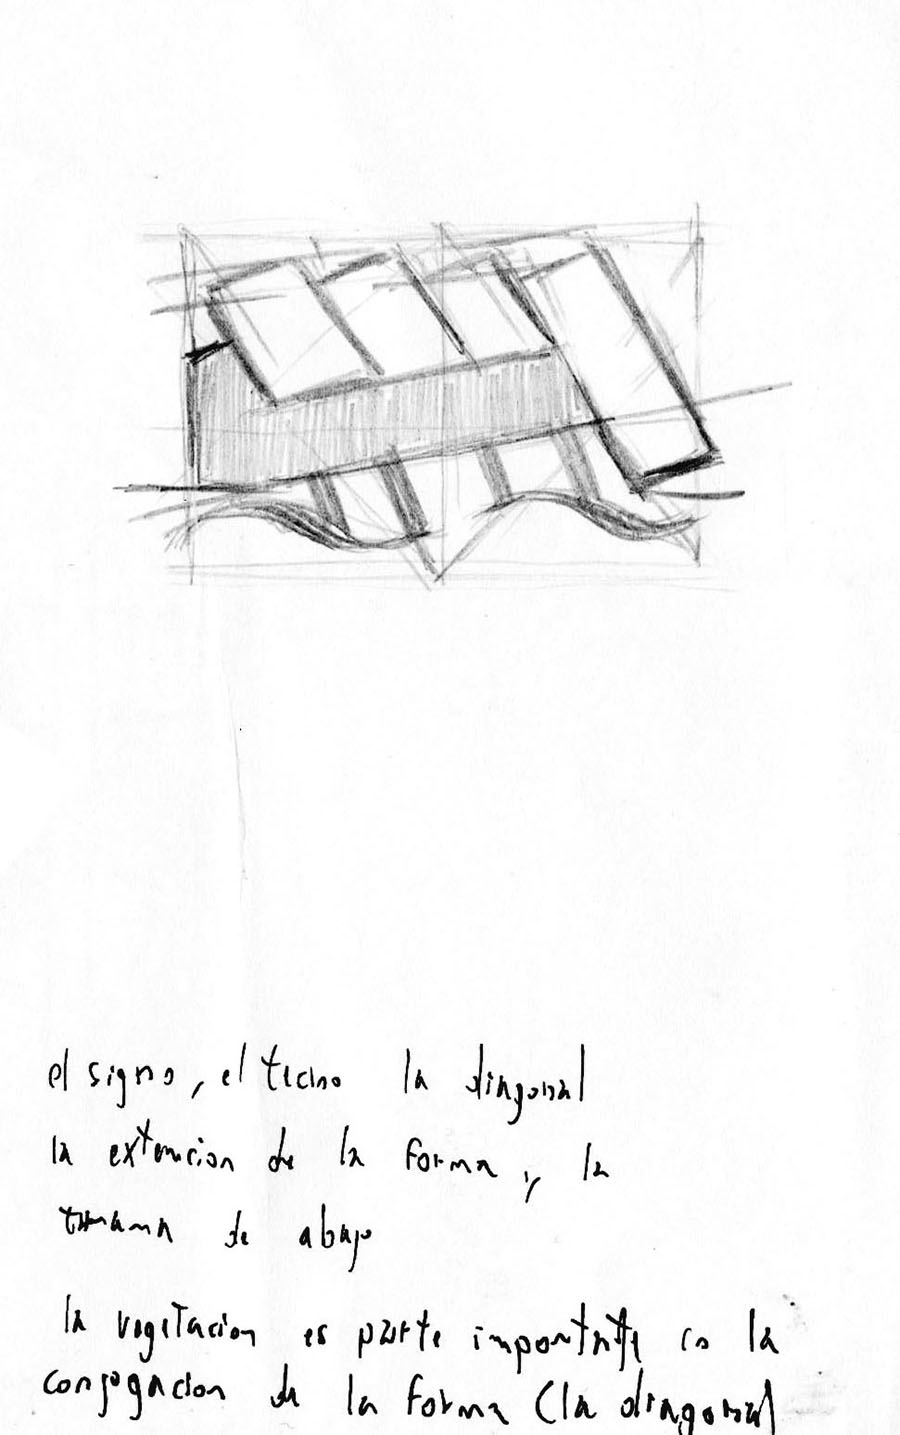 el signo, el techo la diagonal
la extencion de la forma, y la
de abajo
la vegetacion es parte importante en la
conjogacion de la forma (la diagonal